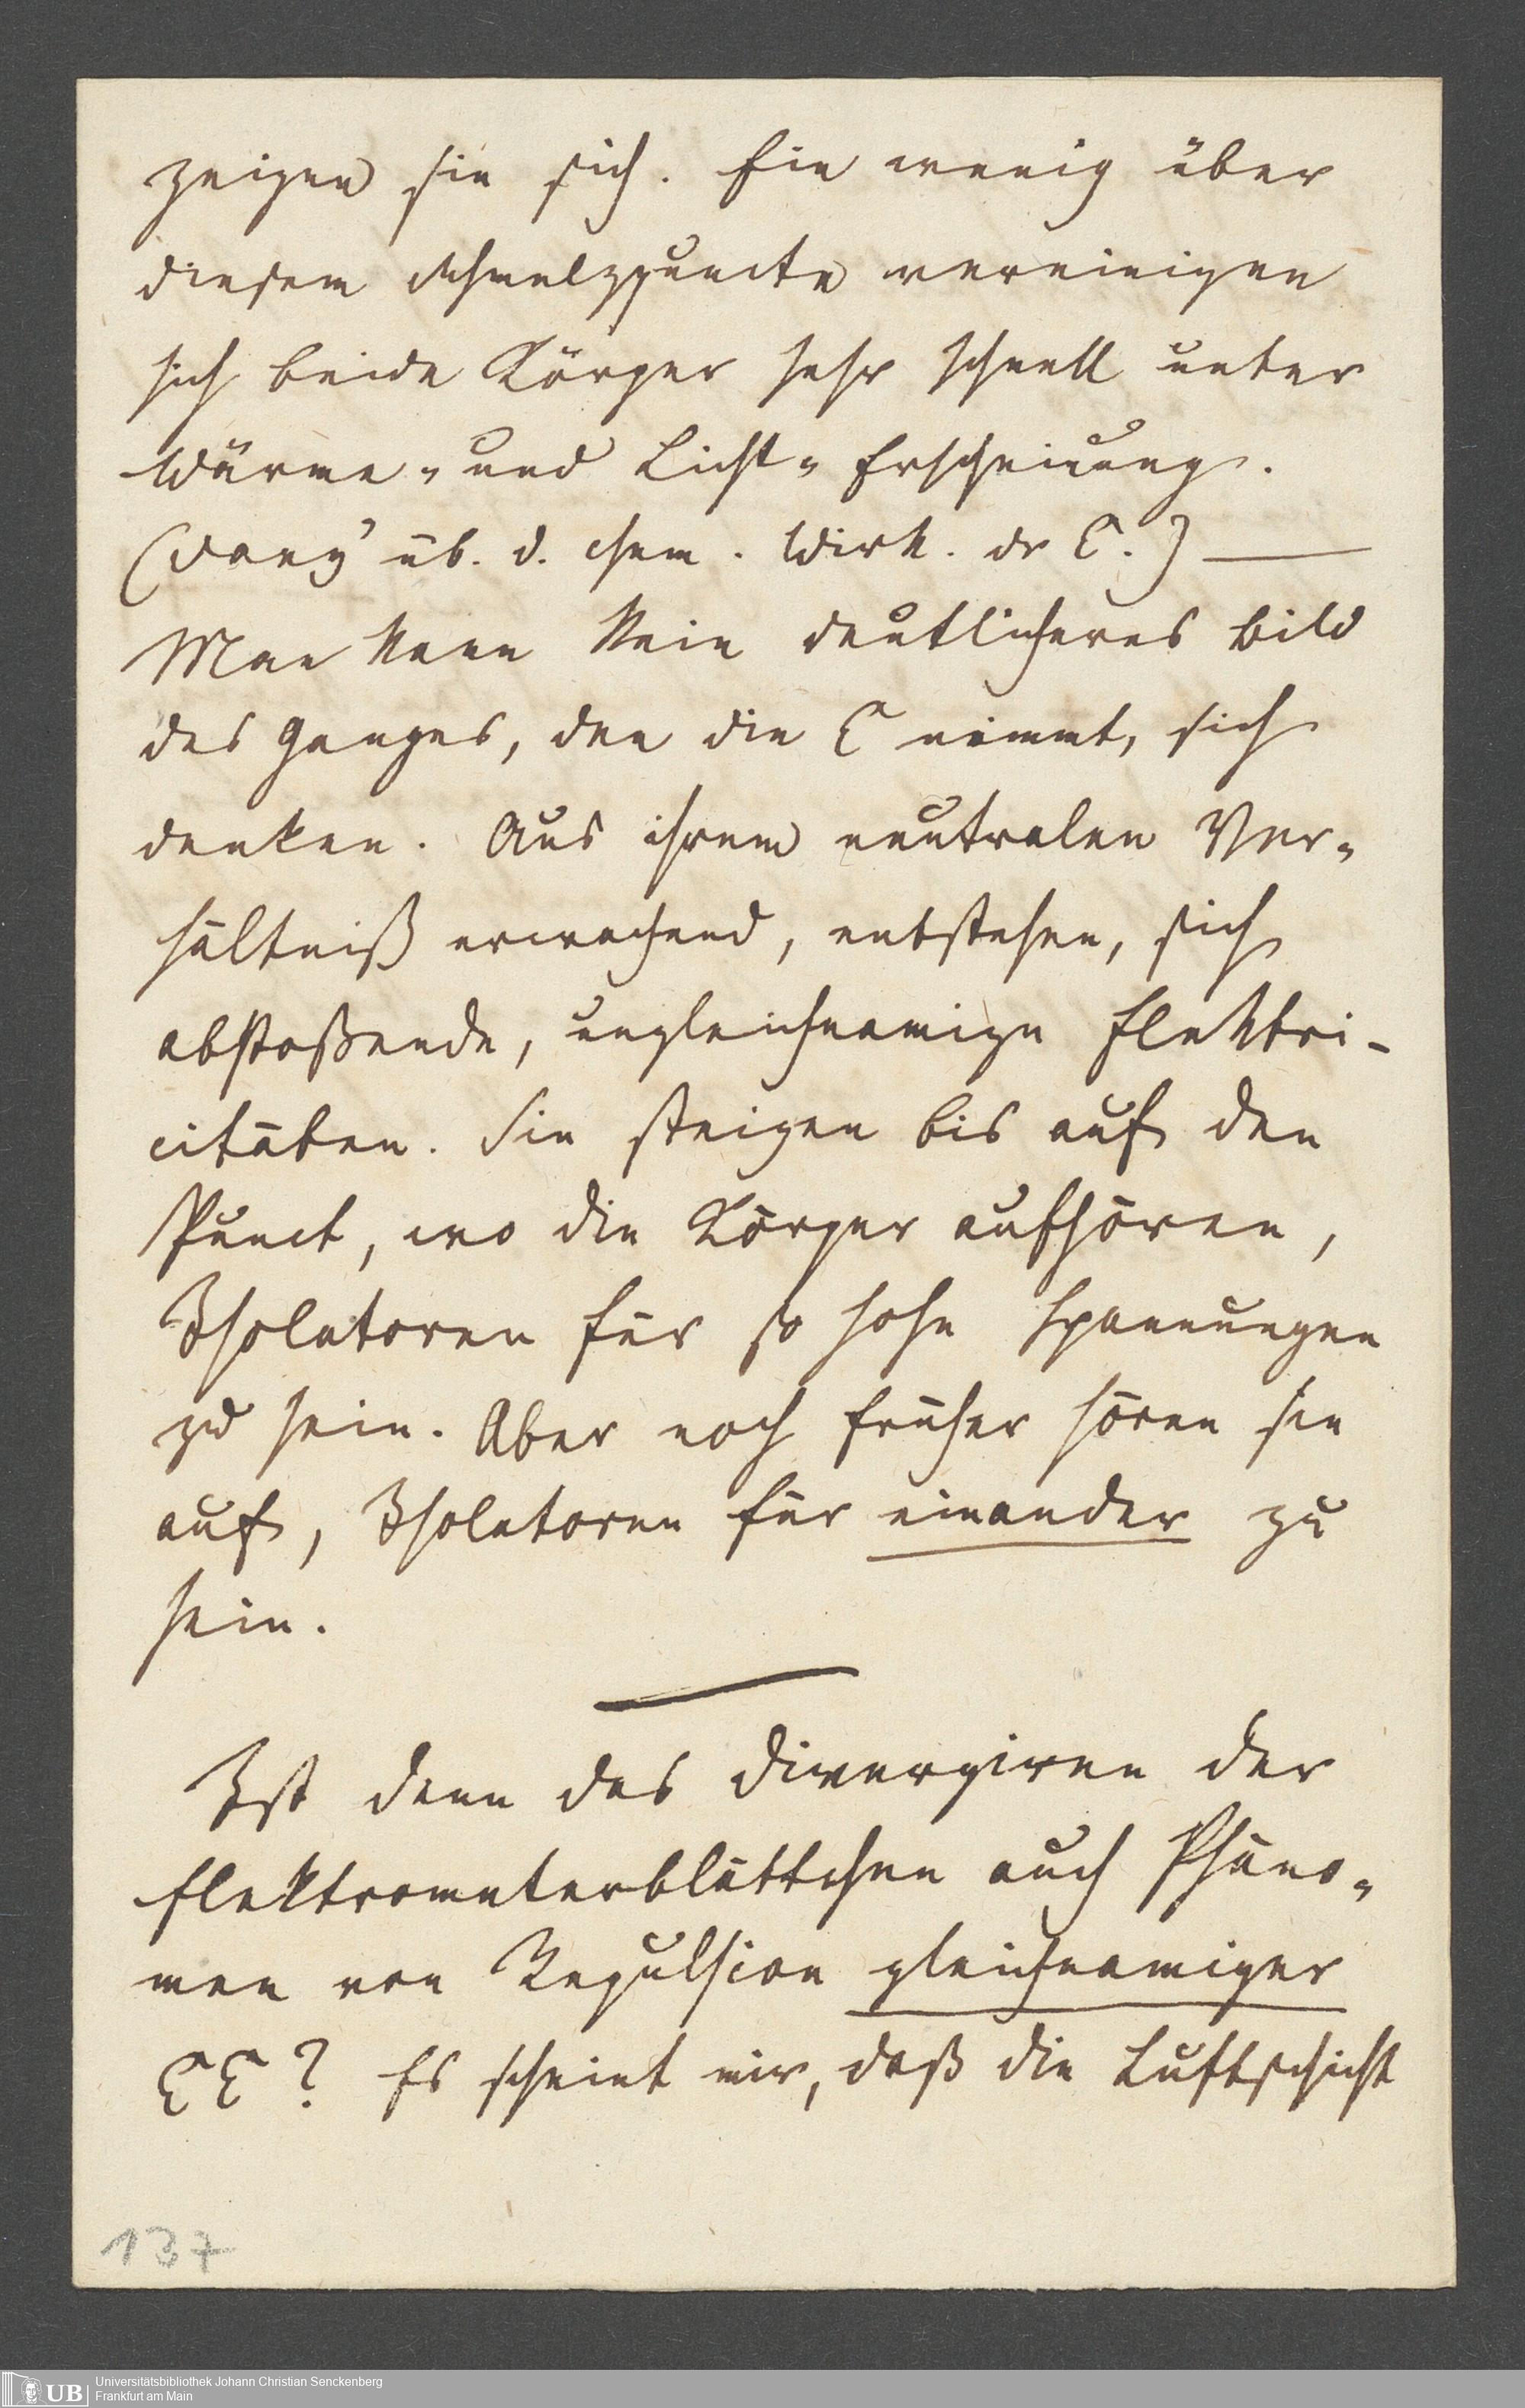 zeigen sie sich. Ein wenig über
diesem Schmelzpuncte vereinigen
sich beide Körper sehr schnell unter
Wärme- und Licht-Erscheinung.
(Davy üb. d. chem. Wirk. dr E.) —
Man kann kein deutlicheres Bild
des Ganges, den die E nimmt, sich
denken. Aus ihrem neutralen Ver-
hältniß erwachend, entstehen, sich
abstoßende, ungleichnamige Elektri-
citäten. Sie steigen bis auf den
Punct, wo die Körper aufhören,
Isolatoren für so hohe Spannungen
zu sein. Aber noch früher hören sie
auf, Isolatoren für einander zu
sein.
Ist denn das Divergiren der
Elektrometerblättchen auch Phäno-
men von Repulsion gleichnamiger
EE? Es scheint mir, daß die Luftschicht
137
UB
Universitätsbibliothek Johann Christian Senckenberg
Frankfurt am Main